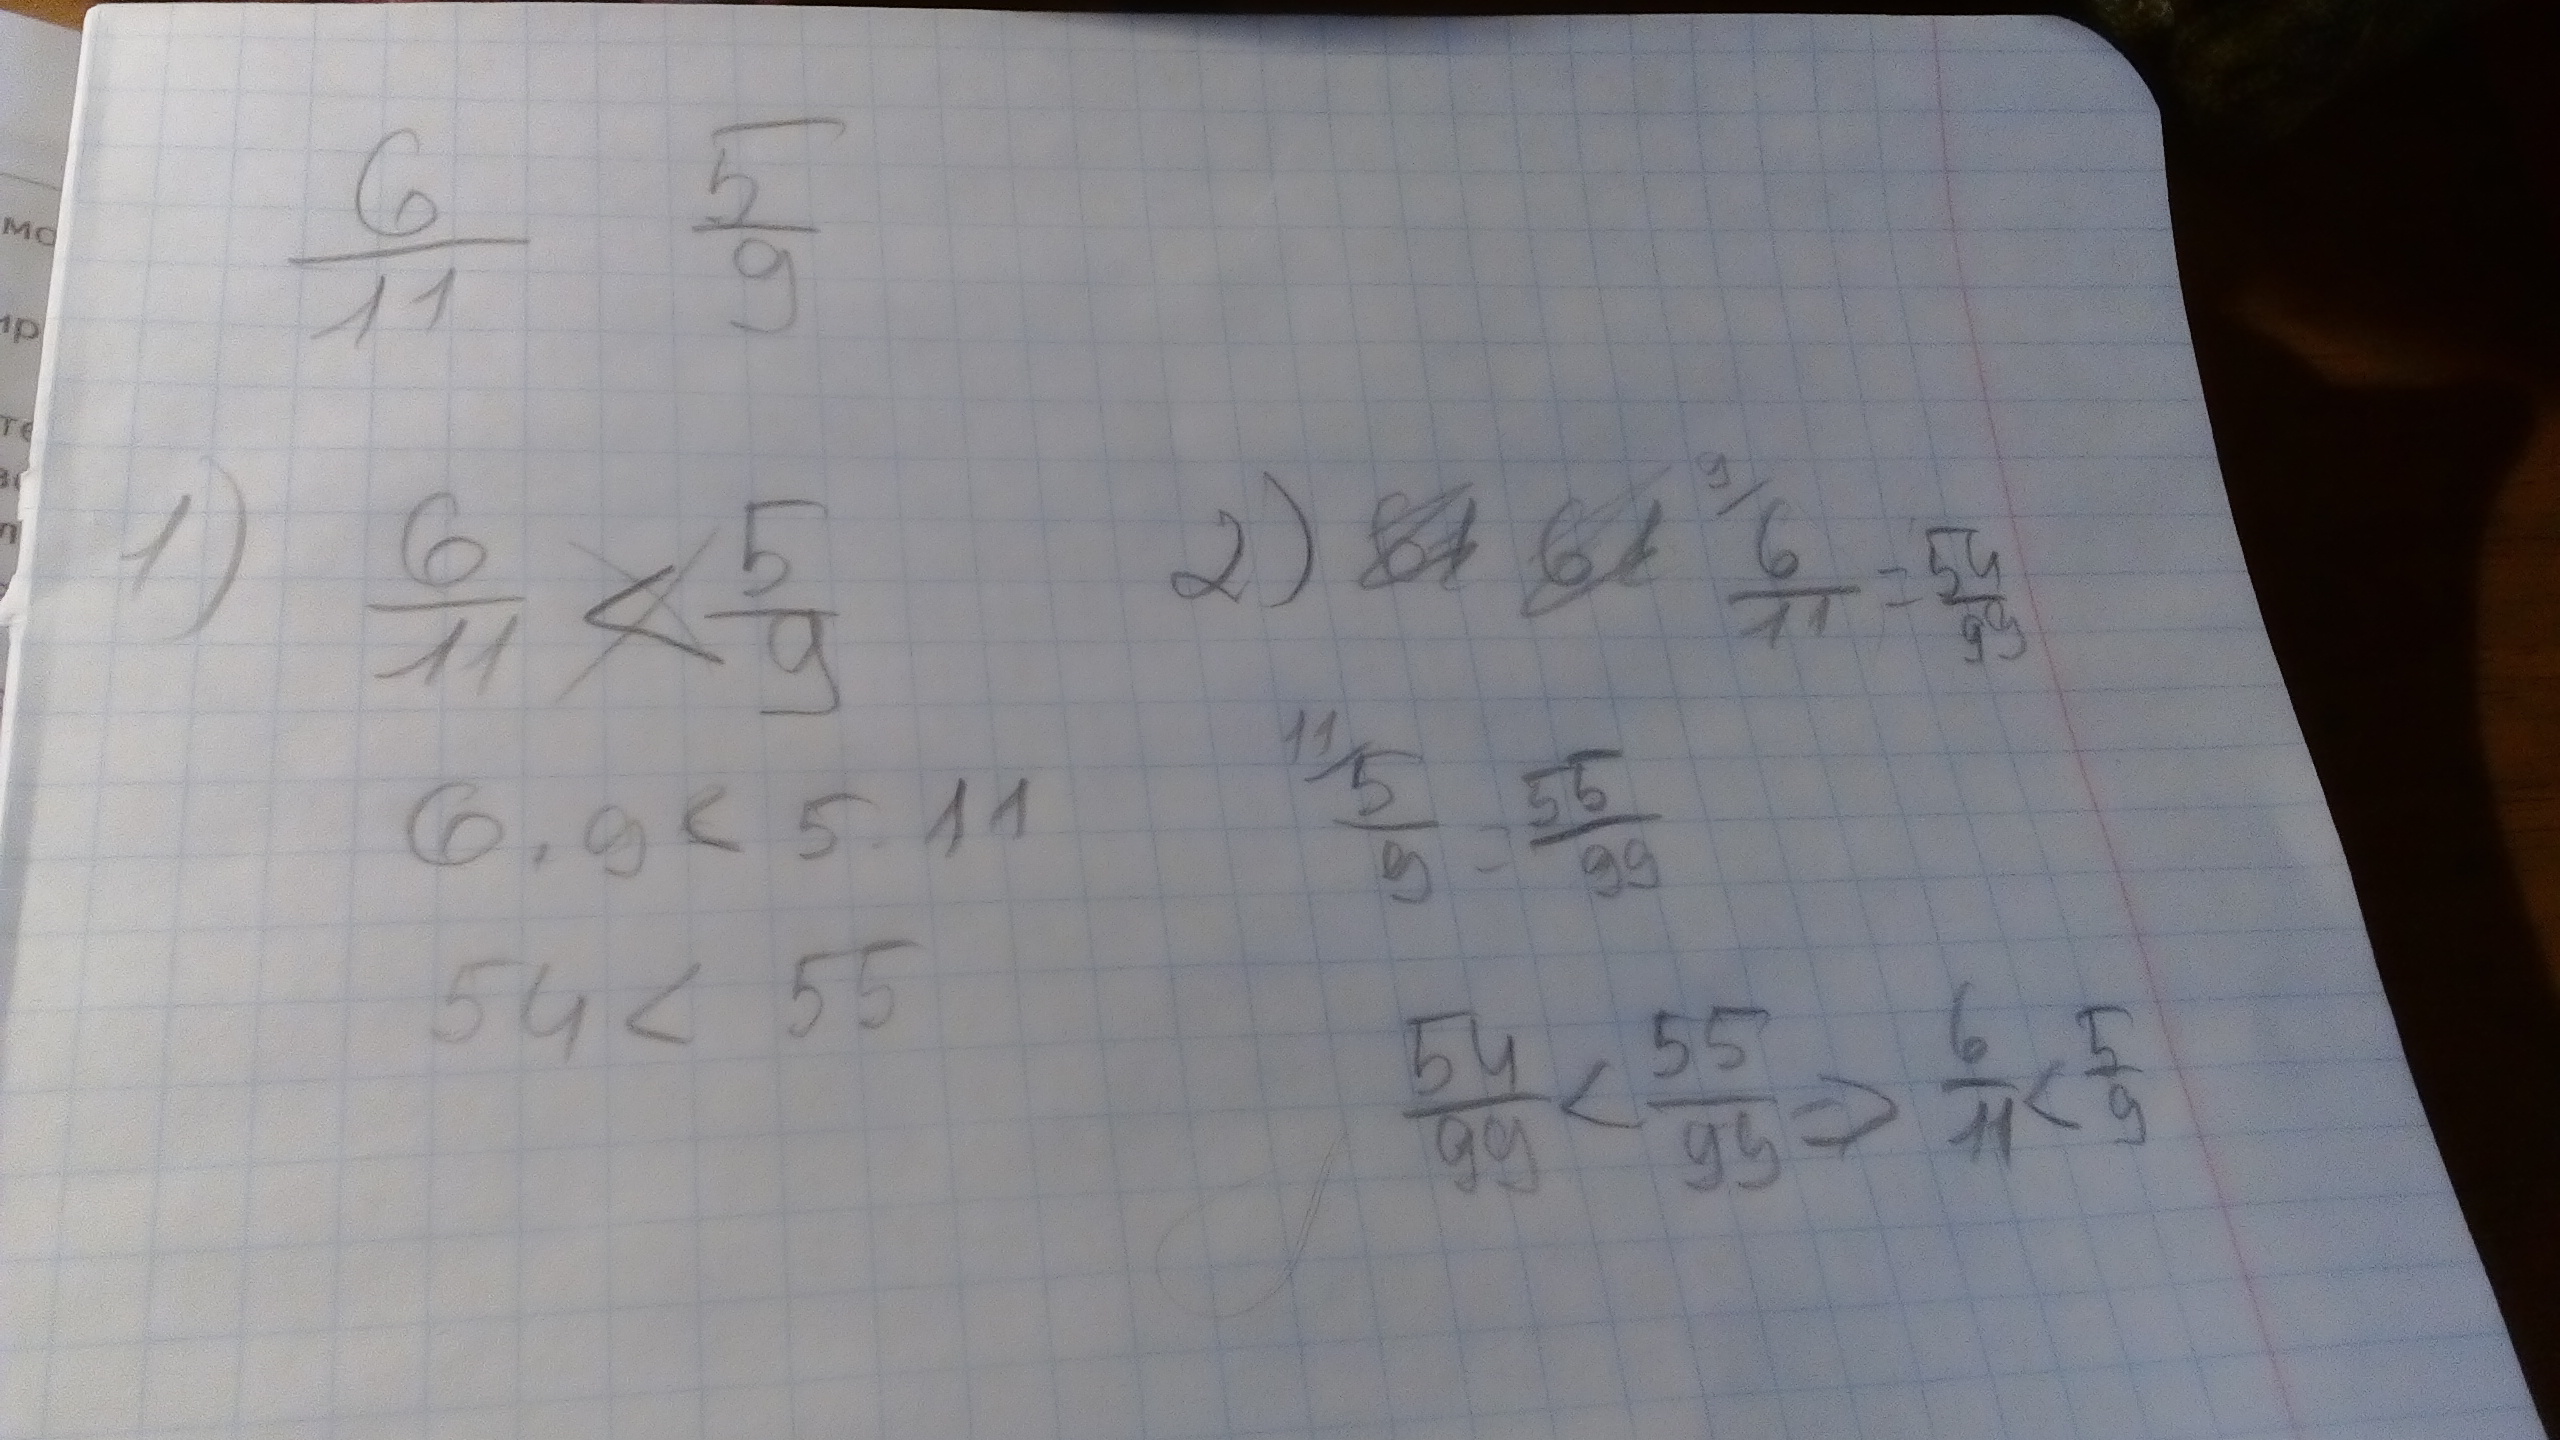 6/11 5/9
1) 6/11 < 5/9
6 · 9 < 5 · 11
54 < 55
2) 9/ 6/11 = 54/99
11/ 5/9 = 55/99
54/99 < 55/99 => 6/11 < 5/9